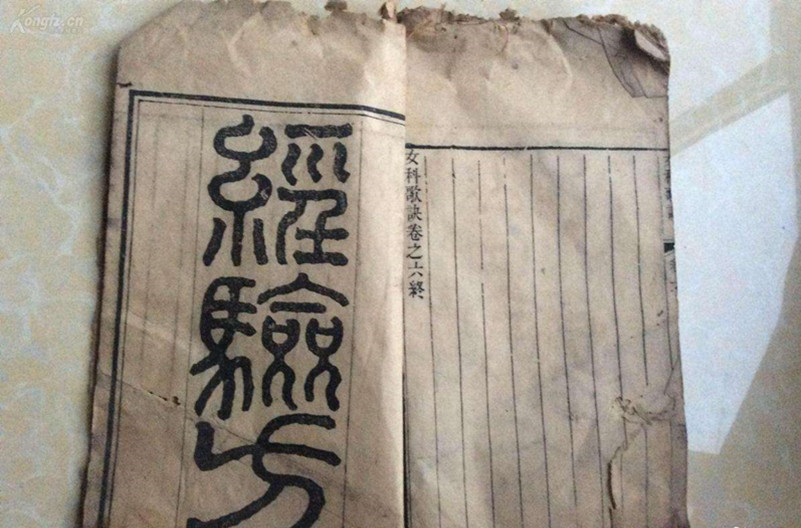 Kongfz.cn
經驗方
女科歌訣卷之六終